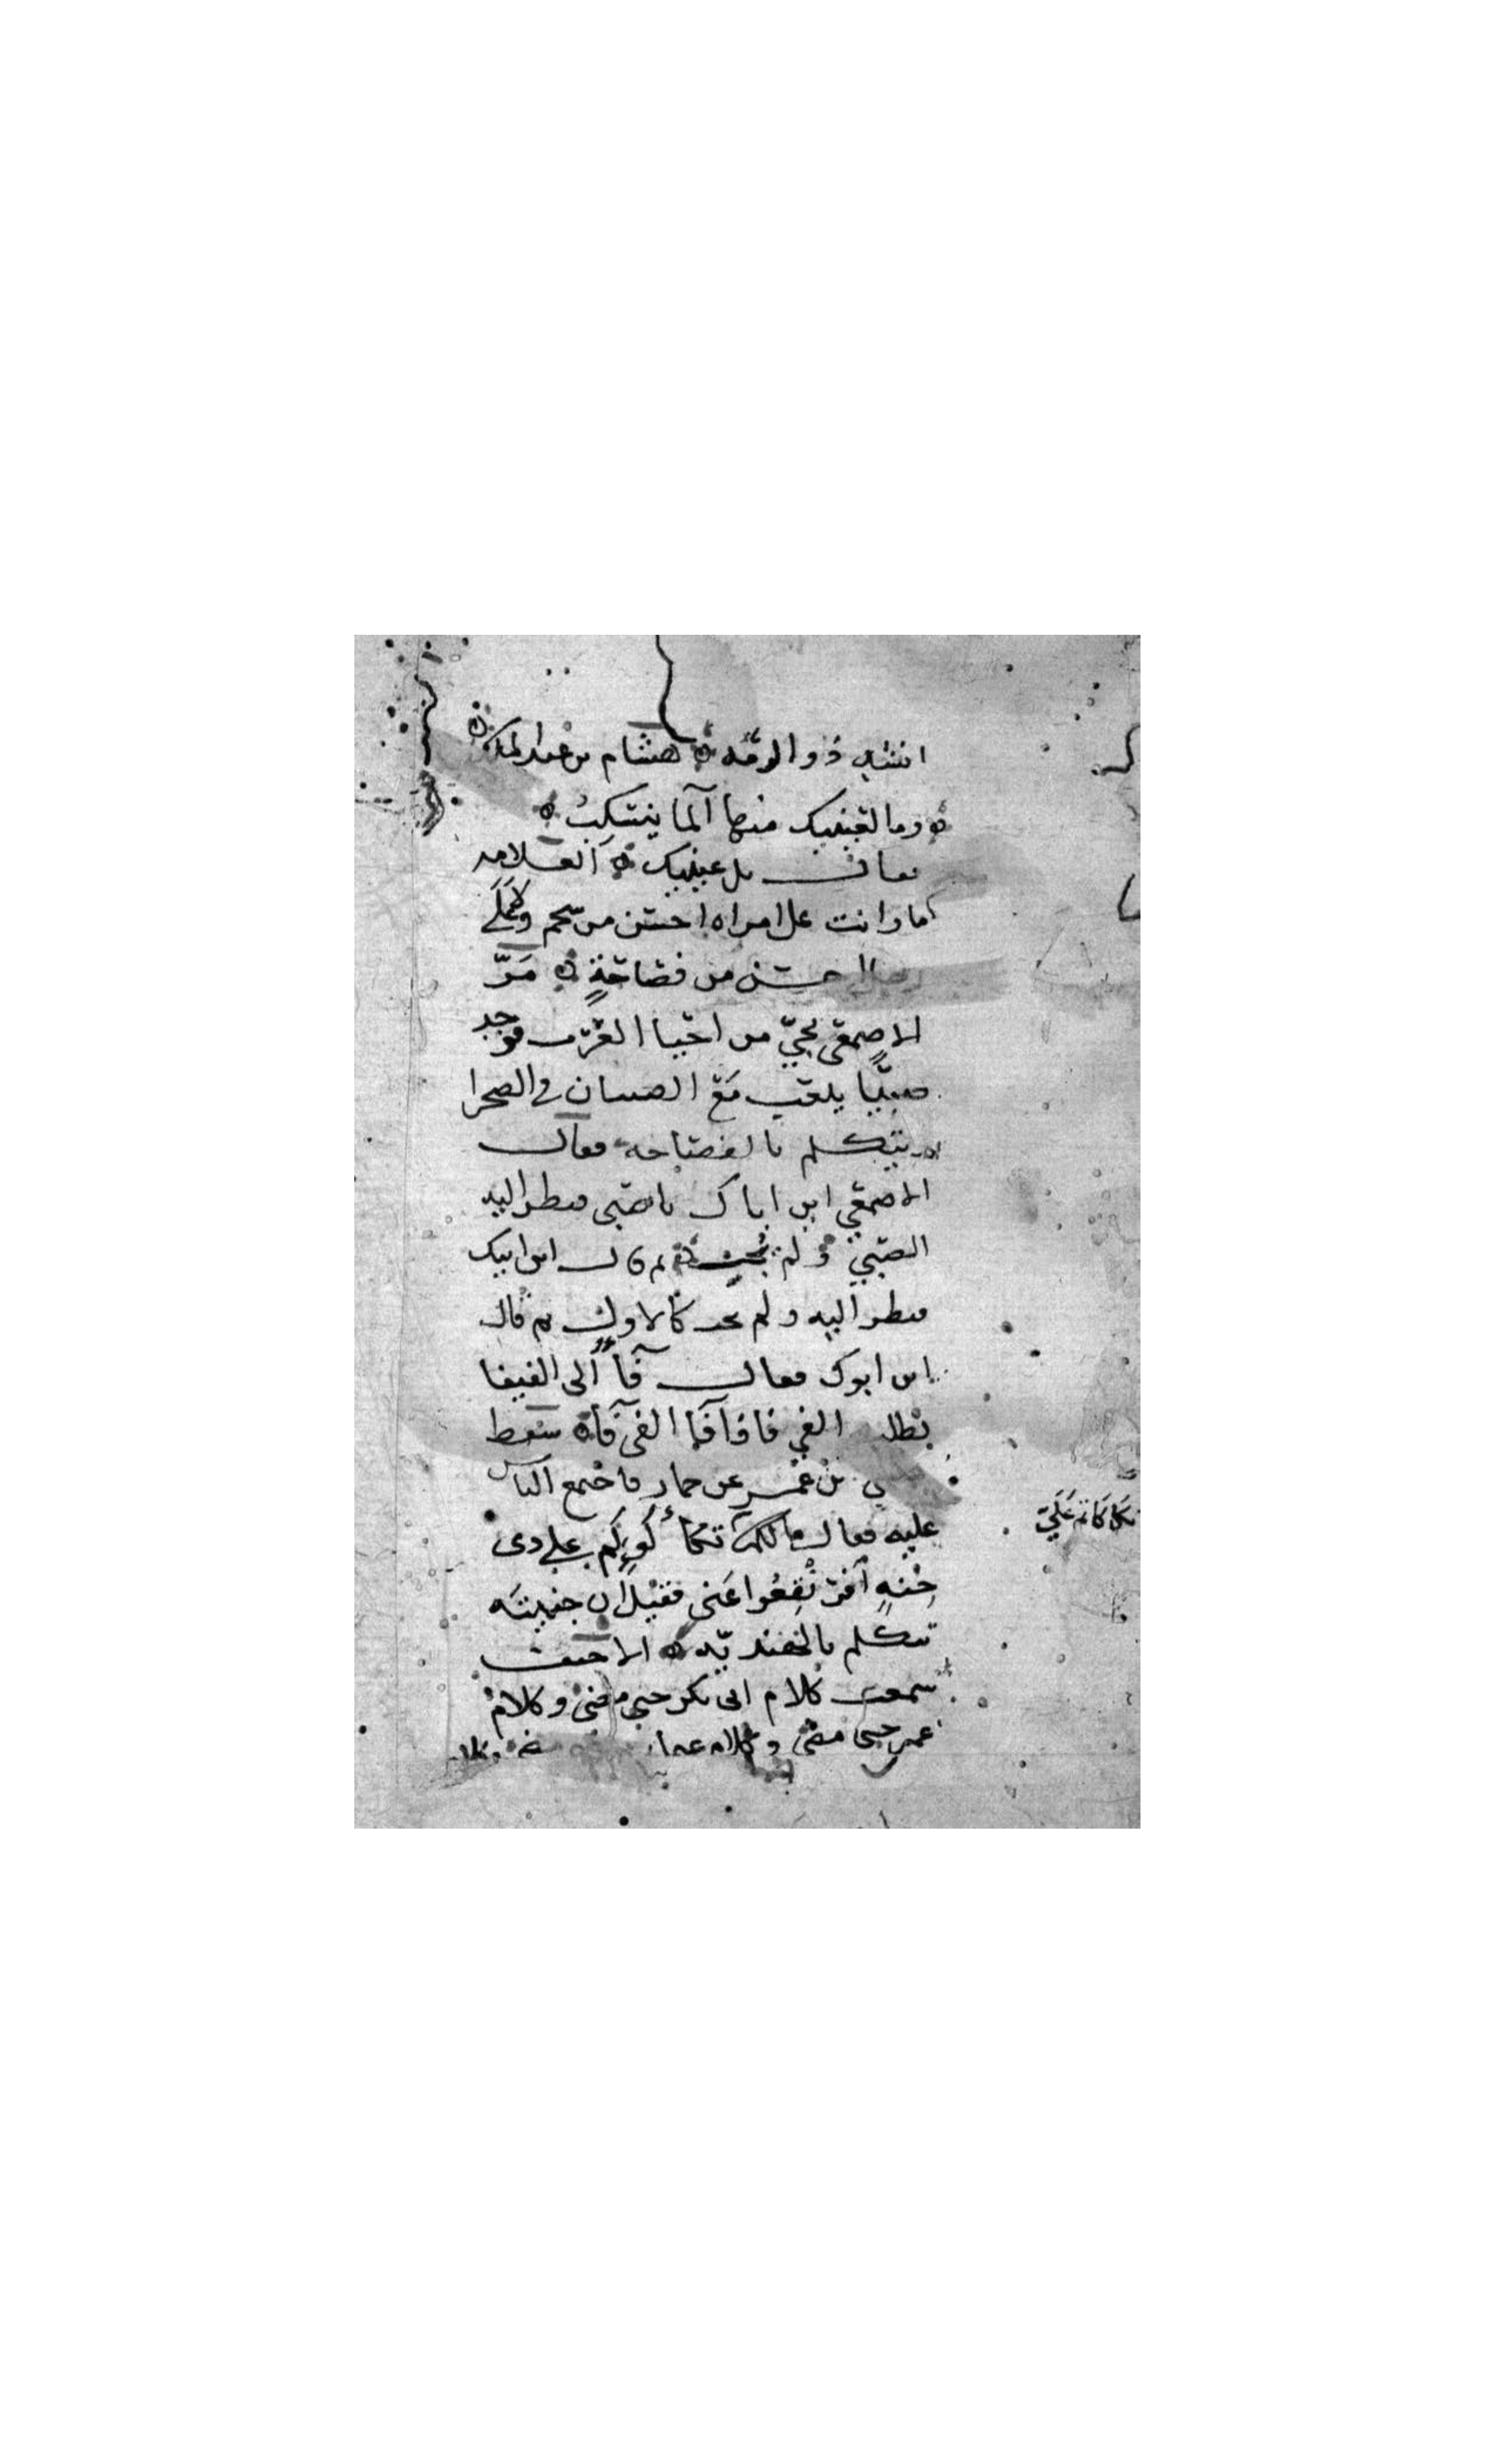 انشد ذو الرمه هشام بن عبد الملك
وما لعينيك منها الما ينسكب
فقال بل عينيك العلامه
ما رانت على امراه احسن من شحم ولا على
رجل احسن من فصاحة مر
الاصمعي بحي من احيا العرب فوجد
صبيا يلعب مع الصبيان في الصحرا
يتكلم بالفصاحه فقال
الاصمعي اين اباك يا صبي فنظر اليه
الصبي ولم يجب ثم قال اين ابيك
فنظر اليه ولم يجد كالاول ثم قال
اين ابوك فقال فاء الى الفيفا
بطلب الفي فاذا فا الفي فاء سقط
عيسي بن عمر عن حمار فاجتمع الناس
عليه فقال ما لكم تكاكوكم على ذى
جنه افرنقعوا عنى فقيل ان جنيته
تتكلم بالهنديه الاحنف
سمعت كلام ابى بكر حتى مضى وكلام
عمر حتى مضى وكلام
تكاكاتم علي